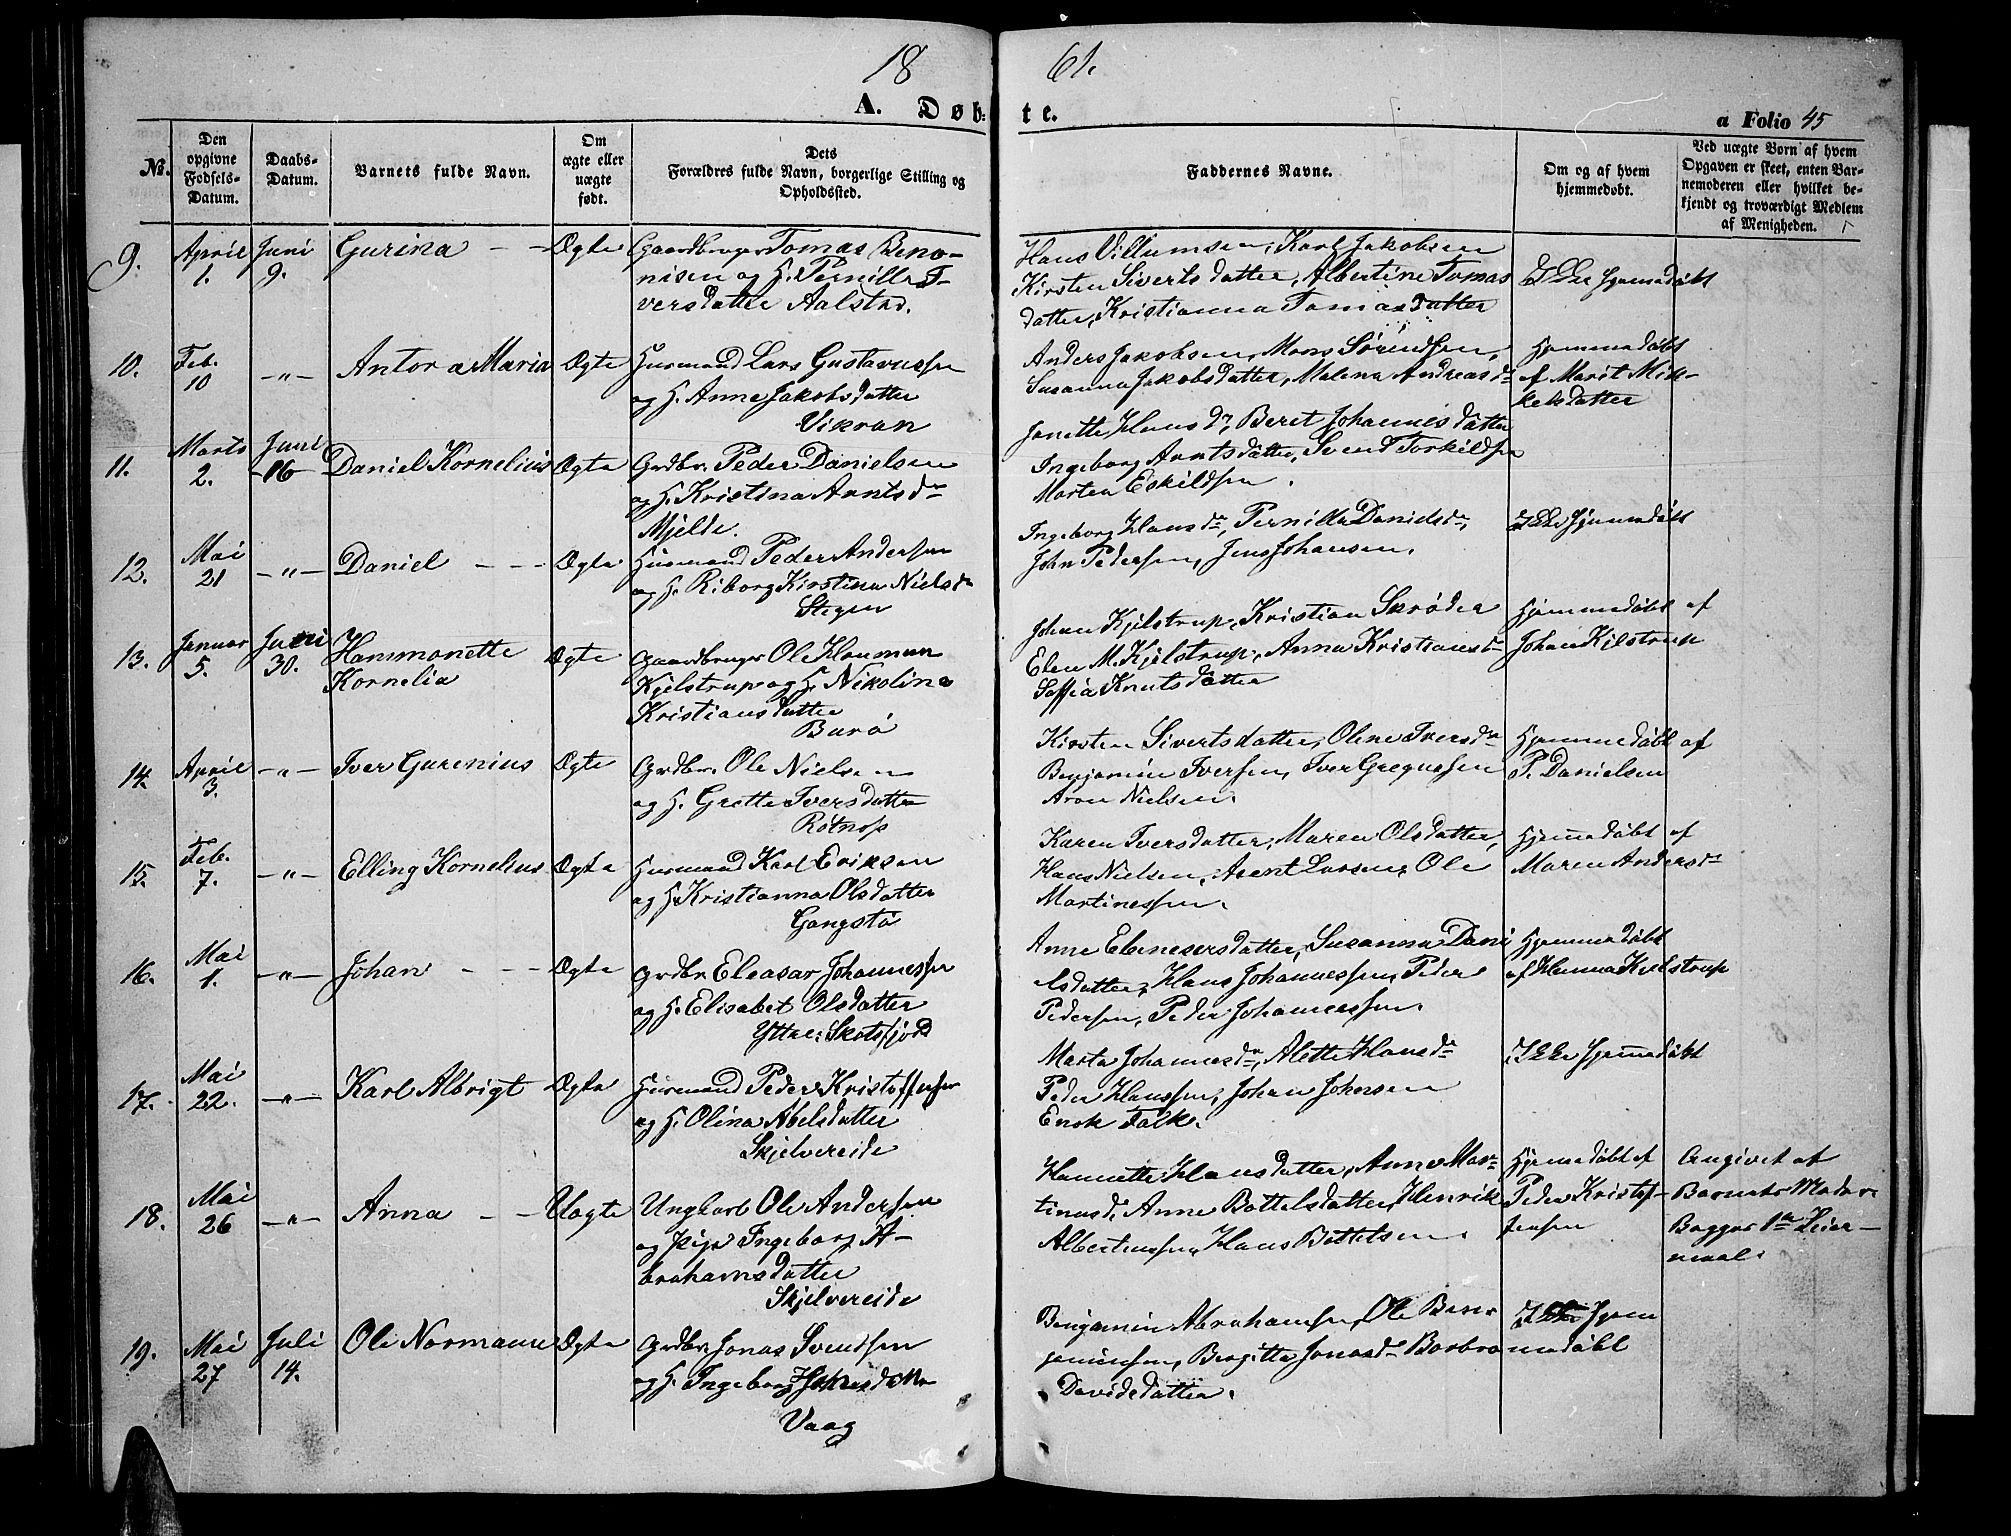 18 61.
A. Døb: te.
a Folio 45
No.
Den opgivne Fødsels-Datum.
Daabs-Datum.
Barnets fulde Navn.
Om ægte eller uægte født.
Dets Forældres fulde Navn, borgerlige Stilling og Opholdssted.
Faddernes Navne.
Om og af hvem hjemmedøbt.
Ved uægte Børn af hvem Opgaven er skeet, enten Barnemoderen eller hvilket bekjendt og troværdigt Medlem af Menigheden.
9. April 1. Juni 9. Gurina - - Ægte
Gaardbruger Tomas Beno-
nisen og H. Pernilla I-
versdatter Aalstad.
Hans Villumsen, Karl Jakobsen
Kirsten Sivertsdatter, Albertine Tomas
datter, Kristianna Tomasdatter
Ikke hjemmedøbt
10. Feb. 10 -"- Antor a Maria Ægte
Husmand Lars Gustavussen
og H. Anne Jakobsdatter
Vikran
Anders Jakobsen, Mons Sørensen,
Susanna Jakobsdatter, Malena Andreasdr
Janette Hansdr, Beret Johannesdatter
Hjemmedøbt
af Marit Mik-
kelsdatter
11. Marts 2. Juni 16 Daniel Kornelius Ægte
Grdbr. Peder Danielsen
og H. Kristina Arntsdr
Mjelde.
Ingeborg Arntsdatter, Svend Torkildsen
Morten Eskildsen.
12. Mai 21 -"- Daniel - - - Ægte
Husmand Peder Andersen
og H. Riborg Kirstina Nielsdr
Stegen
Ingeborg Hansdr, Pernilla Danielsdr,
John Pedersen, Jens Johansen.
Ikke hjemmedøbt
13. Januar 5. Juni 30. Hansmonette
Kornelia
Ægte
Gaardbruger Ole Hanman
Kjelstrup og H. Nikoline
Kristiansdatter
Burø
Johan Kjelstrup, Kristian Skrøder
Elen M. Kjelstrup, Anna Kristiansdr
Soffia Knutsdatter
Hjemmedøbt af
Johan Kjelstrup
14. April 3. -"- Iver Gurenius Ægte
Grdbr. Ole Nielsen
og H. Grette Iversdatter
Røtnes
Kirsten Sivertsdatter, Oline Iversdr
Benjamin Iversen, Iver Gregusen
Aron Nielsen.
Hjemmedøbt af
P. Danielsen
15. Feb. 7. -"- Elling Kornelius Ægte
Husmand Karl Eriksen
og H. Kristianna Olsdatter
Gangstø
Karen Iversdatter, Maren Olsdatter,
Hans Nielsen, Arent Larsen, Ole
Martinessen.
Hjemmedøbt af
Maren Andersdr
16. Mai 1. -"- Johan - - - Ægte
Grdbr. Eleasar Johannessen
og H. Elisabet Olsdatter
Yttre: Skotsfjord
Anne Ebenesersdatter, Susanna Dani
elsdatter, Hans Johannessen, Peder
Pedersen, Peder Johannessen.
Hjemmedøbt
af Hanna Kjelstrup
17. Mai 22. -"- Karl Albrigt Ægte
Husmand Peder Kristoffersen
og H. Olina Abelsdatter
Skjelvereide
Marta Johannesdr, Alette Hansdr
Peder Hanssen, Johan Johnsen
Enok Falk.
Ikke hjemmedøbt
18. Mai 26 -"- Anna - - Uægte
Ungkarl Ole Andersen
og Pige Ingeborg A-
brahamsdatter
Skjelvereide
Hannette Hansdatter, Anne Mar-
tinusd, Anne Bottelsdatter, Henrik
Albertussen, Hans Bottelsen.
Hjemmedøbt af
Peder Kristof-
fersen
Angivet af
Barnets Moder
Begges 1ste Leier-
maal.
19. Mai 27 Juli 14. Ole Normann Ægte
Grdbr. Jonas Svendsen
og H. Ingeborg
Vaag
Benjamin Abrahamsen, Ole Ben-
jaminsen, Bergitte Jonasdr Barbro
Davidsdatter.
Ikke hjem
medøbt